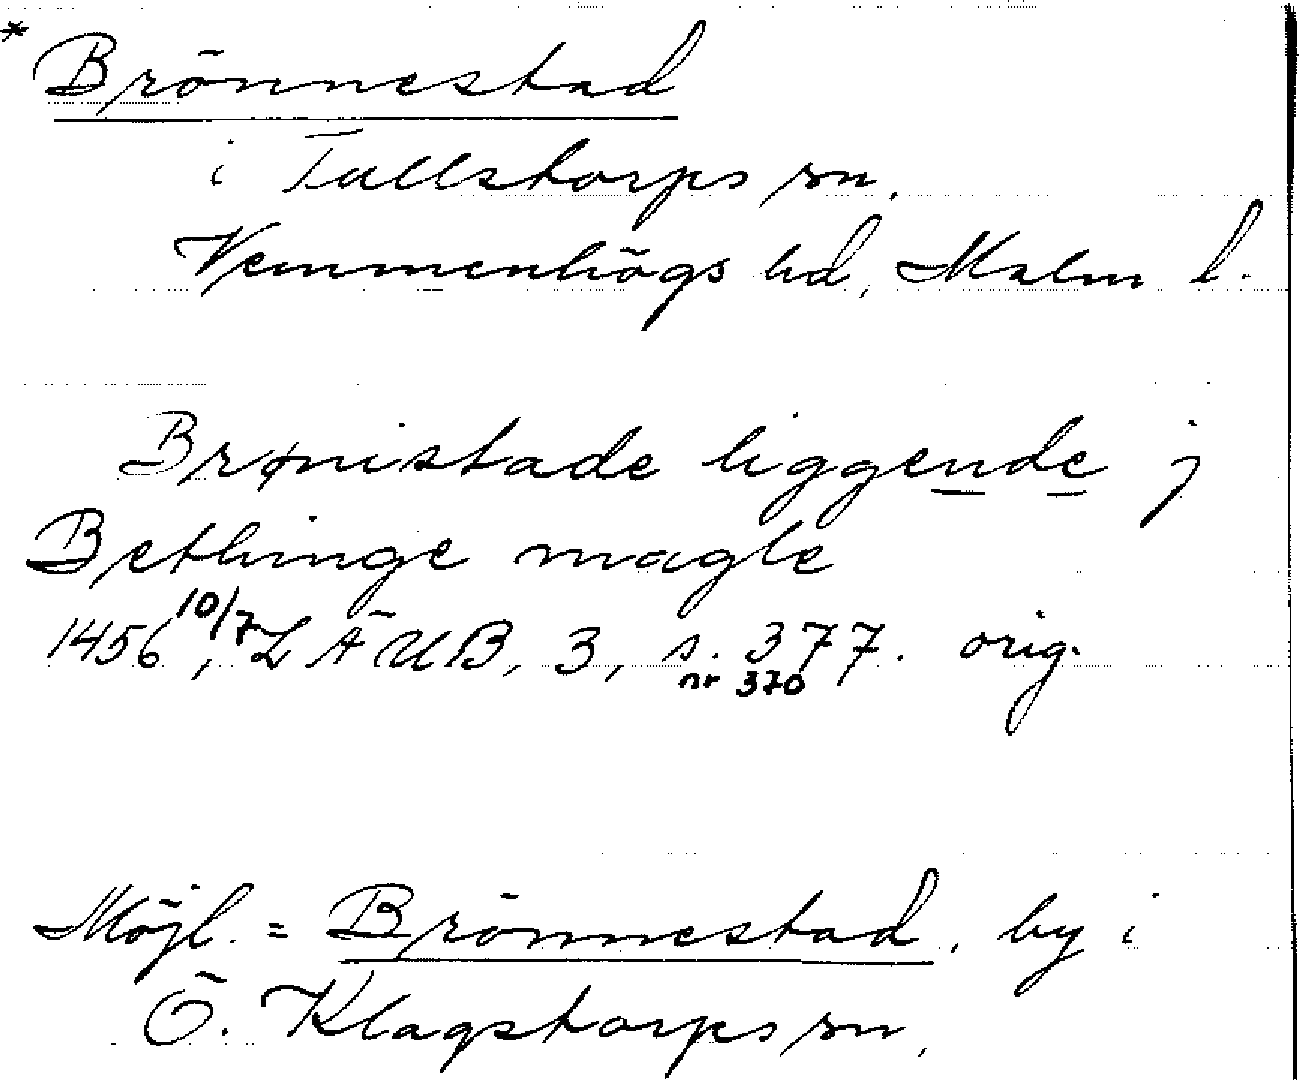 * Brönnestad
i Tullstorps sn.
Vemmenhögs hd, Malm l.
Brønistade liggende j
Bethinge magle
1456 10/7, LÄUB, 3, s. 377. orig.
nr 370
Möjl. = Brönnestad, by i
Ö. Klagstorps sn,